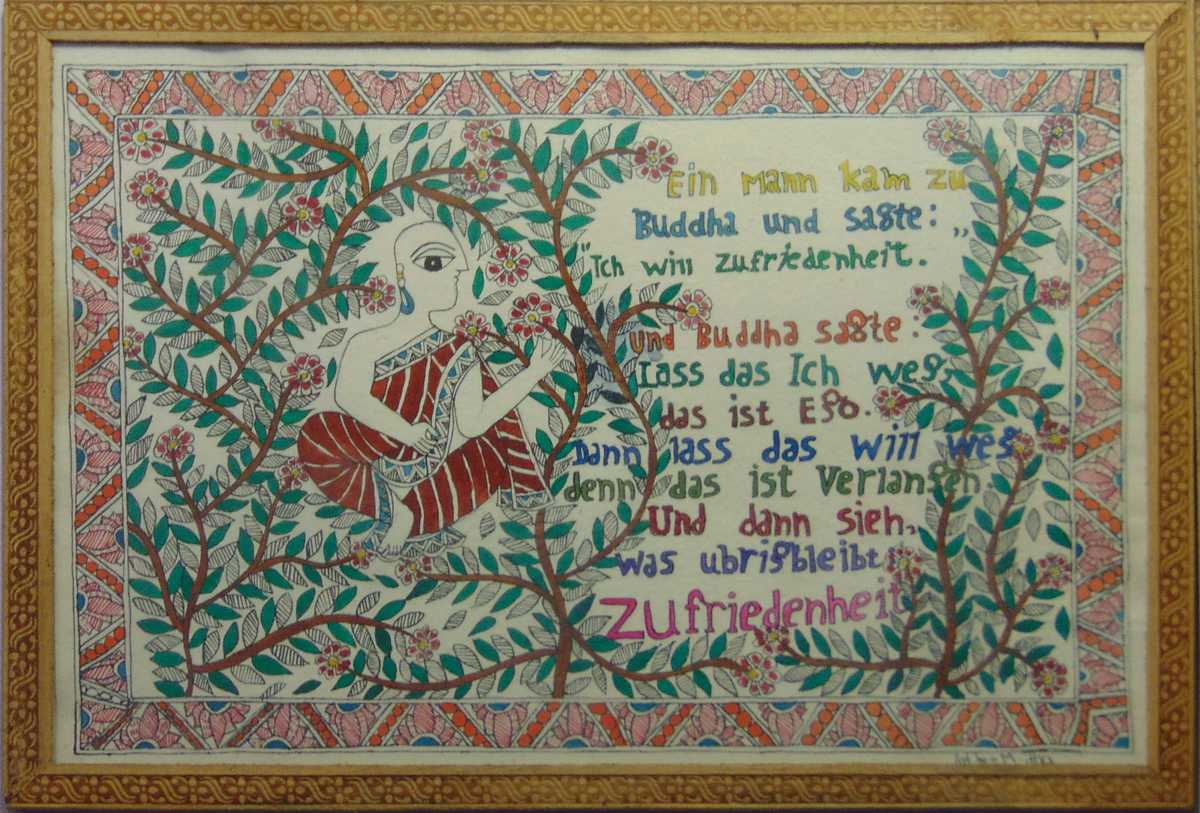 Ein Mann kam zu
Buddha und sagte: „
"Ich will zufriedenheit.
und Buddha sagte:
Lass das Ich weg,
das ist Ego.
Dann lass das will weg
denn das ist Verlangen.
Und dann sieh,
was ubrigbleibt:
Zufriedenheit